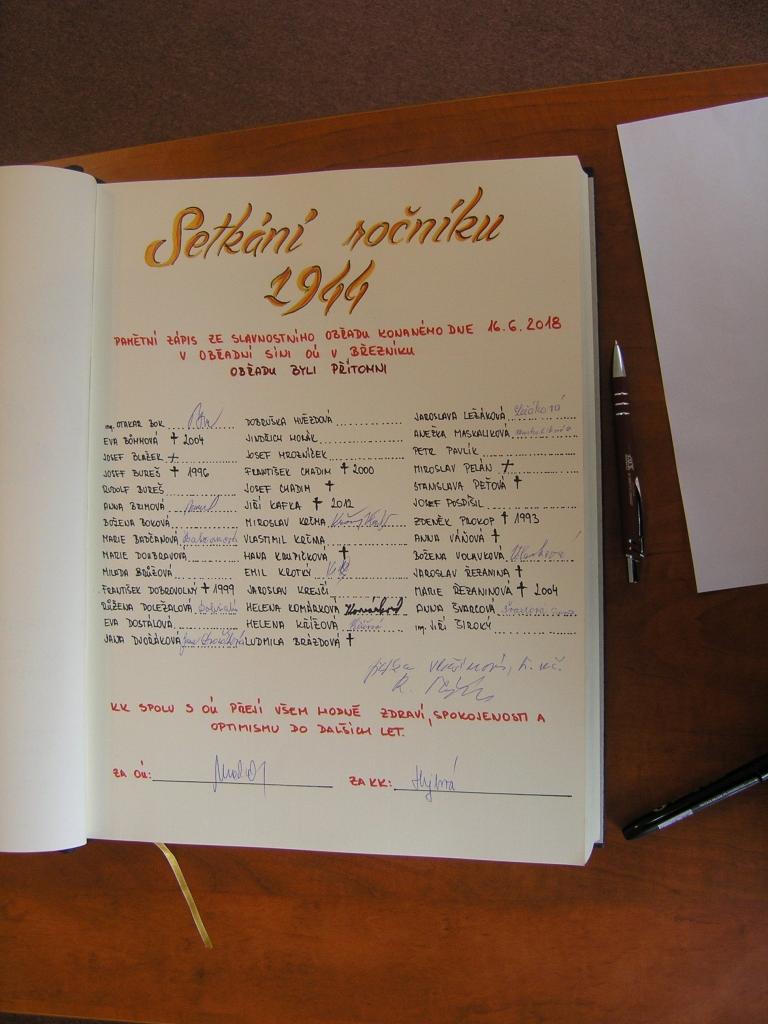 Setkání ročníku
1944
PAMĚTNÍ ZÁPIS ZE SLAVNOSTNÍHO OBŘADU KONANÉHO DNE 16.6.2018
V OBŘADNÍ SÍNI OÚ V BŘEZNÍKU
OBŘADU BYLI PŘÍTOMNI
ing. OTAKAR BOK
EVA BÖHMOVÁ † 2004
JOSEF BLAŽEK †
JOSEF BUREŠ † 1996
RUDOLF BUREŠ
ANNA BRIMOVÁ
BOŽENA BOKOVÁ
MARIE BABČANOVÁ
MARIE DOUBRAVOVÁ
MILADA BRŮŽOVÁ
FRANTIŠEK DOBROVOLNÝ † 1999
RŮŽENA DOLEŽALOVÁ
EVA DOSTÁLOVÁ
JANA DVOŘÁKOVÁ
DOBRUŠKA HVĚZDOVÁ
JINDŘICH HORÁK
JOSEF MROZNÍČEK
FRANTIŠEK CHADIM † 2000
JOSEF CHADIM †
JIŘÍ KAFKA † 2012
MIROSLAV KRČMA
VLASTIMIL KRČMA
HANA KRUPIČKOVÁ †
EMIL KROTKÝ
JAROSLAV KREJČÍ
HELENA KOMÁRKOVÁ
HELENA KŘÍŽOVÁ
LUDMILA BRÁZDOVÁ †
JAROSLAVA LEŽÁKOVÁ
ANEŽKA MASKALIKOVÁ
PETR PAVLÍK
MIROSLAV PELÁN †
STANISLAVA PEŤOVÁ †
JOSEF POSPÍŠIL
ZDENĚK PROKOP † 1993
ANNA VÁŇOVÁ †
BOŽENA VOLAVKOVÁ
JAROSLAV ŘEZANINA †
MARIE ŘEZANINOVÁ † 2004
ANNA ŠVARCOVÁ
ing. JIŘÍ ŠIROKÝ
KK SPOLU S OÚ PŘEJÍ VŠEM HODNĚ ZDRAVÍ, SPOKOJENOSTI A
OPTIMISMU DO DALŠÍCH LET.
ZA OÚ:
ZA KK: